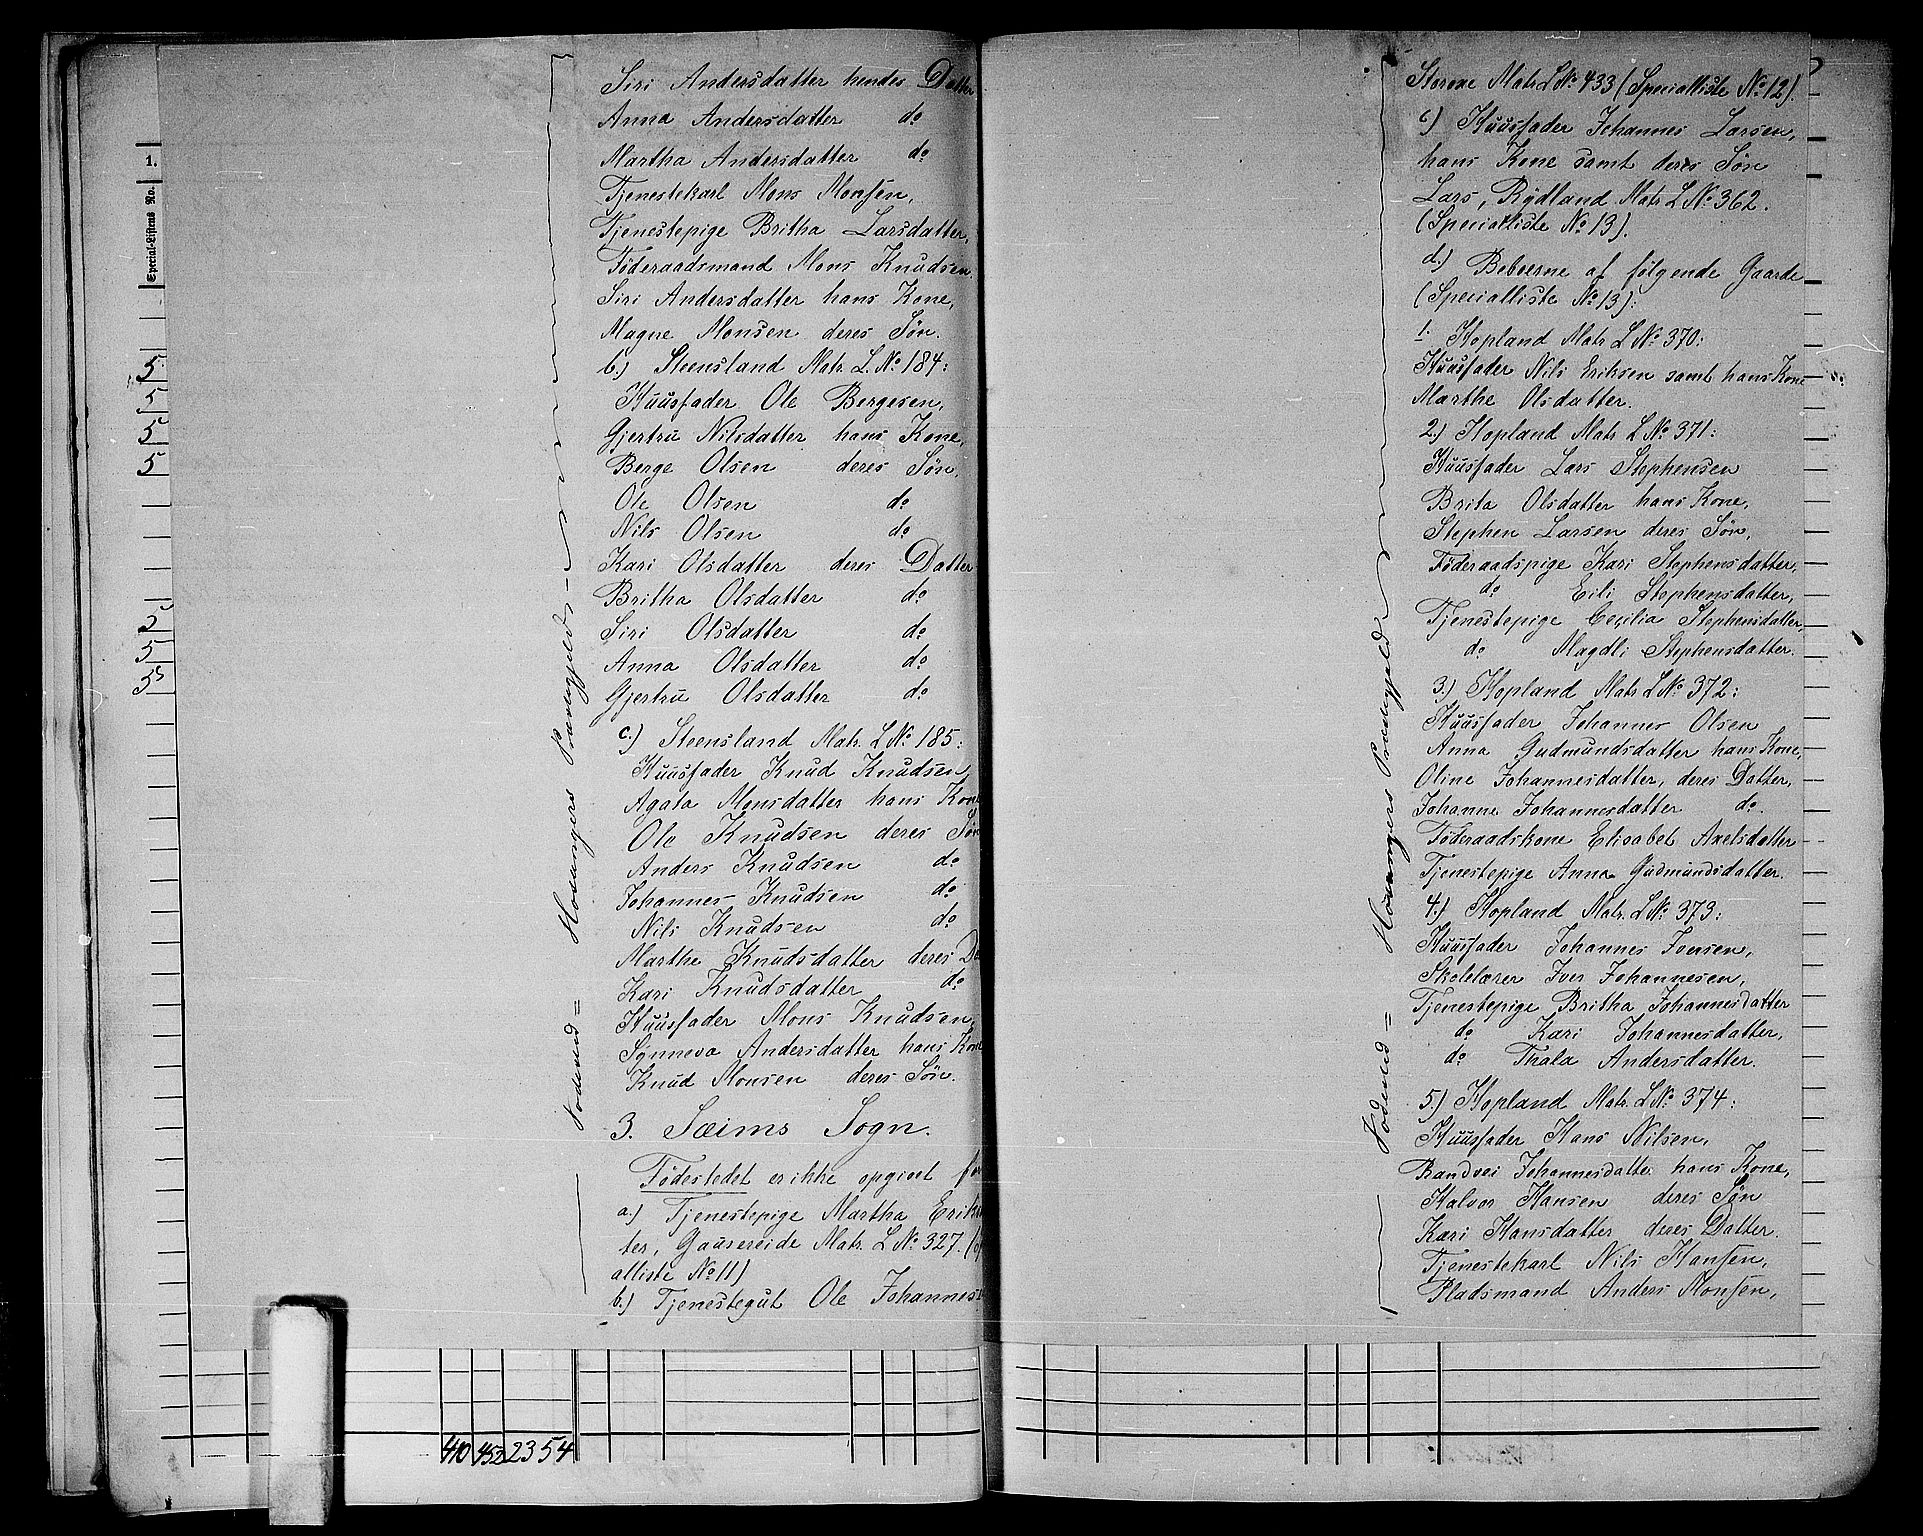 1.
Special-Listens No.
5
5
5
5
5
5
5
Siri Andersdatter hendes Datter
Anna Andersdatter do
Martha Andersdatter do
Tjenestekarl Mons Monsen,
Tjenestepige Britha Larsdatter,
Føderaadsmand Mons Knudsen
Siri Andersdatter hans Kone,
Magne Monsen deres Søn.
b.) Steensland Matr. L.No. 184:
Huusfader Ole Bergesen,
Gjertru Nilsdatter hans Kone,
Berge Olsen deres Søn,
Ole Olsen do
Nils Olsen do
Kari Olsdatter deres Datter
Britha Olsdatter do
Siri Olsdatter do
Anna Olsdatter do
Gjertru Olsdatter do
c.) Steensland Matr. L.No. 185:
Huusfader Knud Knudsen,
Agata Monsdatter hans Kone
Ole Knudsen deres Søn
Anders Knudsen do
Johannes Knudsen do
Nils Knudsen do
Marthe Knudsdatter deres Da
Kari Knudsdatter do
Huusfader Mons Knudsen,
Synneva Andersdatter hans Kone
Knud Monsen deres Søn.
3. Sæims Sogn.
Fødestedet er ikke opgivet for
a.) Tjenestepige Martha Eriks
ter, Gausereide Matr. L.No. 327. (Sp
alliste No. 11)
b.) Tjenestegut Ole Johannes
Hosangers Præstegjeld
410 452 2354
Matr. L.No. 433 (Specialliste No. 12).
c.) Huusfader Johannes Larsen,
hans Kone samt deres Søn
Lars, Rydland Matr. L.No. 362.
(Specialliste No. 13).
d.) Beboerne af følgende Gaarde
(Specialliste No. 13):
1. Hopland Matr. L.No. 370:
Huusfader Nils Eriksen samt hans Kone
Marthe Olsdatter.
2.) Hopland Matr. L.No. 371:
Huusfader Lars Stephensen
Brita Olsdatter hans Kone,
Stephen Larsen deres Søn,
Føderaadspige Kari Stephensdatter,
do Eili Stephensdatter,
Tjenestepige Cecilia Stephensdatter,
do Magdli Stephensdatter.
3.) Hopland Matr. L.No. 372:
Huusfader Johannes Olsen
Anna Gudmundsdatter hans Kone,
Oline Johannesdatter, deres Datter,
Johanne Johannesdatter do.
Føderaadskone Elisabet Axelsdatter
Tjenestepige Anna Gudmundsdatter.
4.) Hopland Matr. L.No. 373:
Huusfader Johannes Iversen,
Skolelærer Iver Johannesen,
Tjenestepige Britha Johannesdatter
do Kari Johannesdatter,
do Thala Andersdatter.
5.) Hopland Matr. L.No. 374:
Huusfader Hans Nilsen,
Randvei Johannesdatter hans Kone,
Halvor Hansen deres Søn
Kari Hansdatter deres Datter.
Tjenestekarl Nils Hansen,
Pladsmand Anders Monsen,
Hosangers Præstegjeld